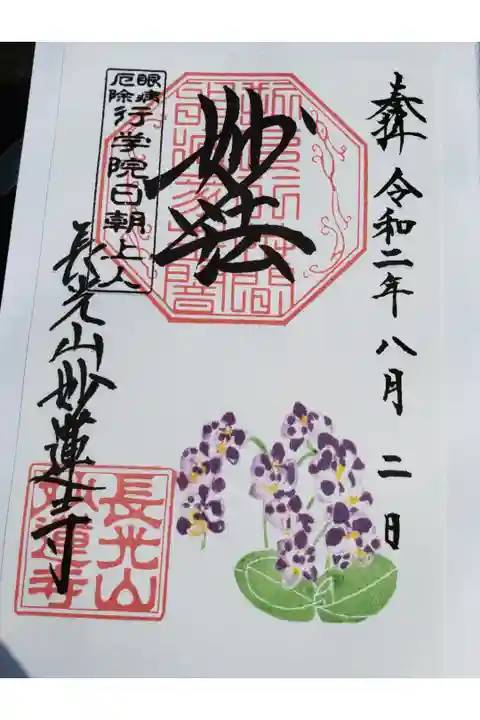 奉拝 令和二年 八月 二日
妙法
眼病
厄除
行学院日朝上人
長光山妙蓮寺
長光山
妙蓮寺